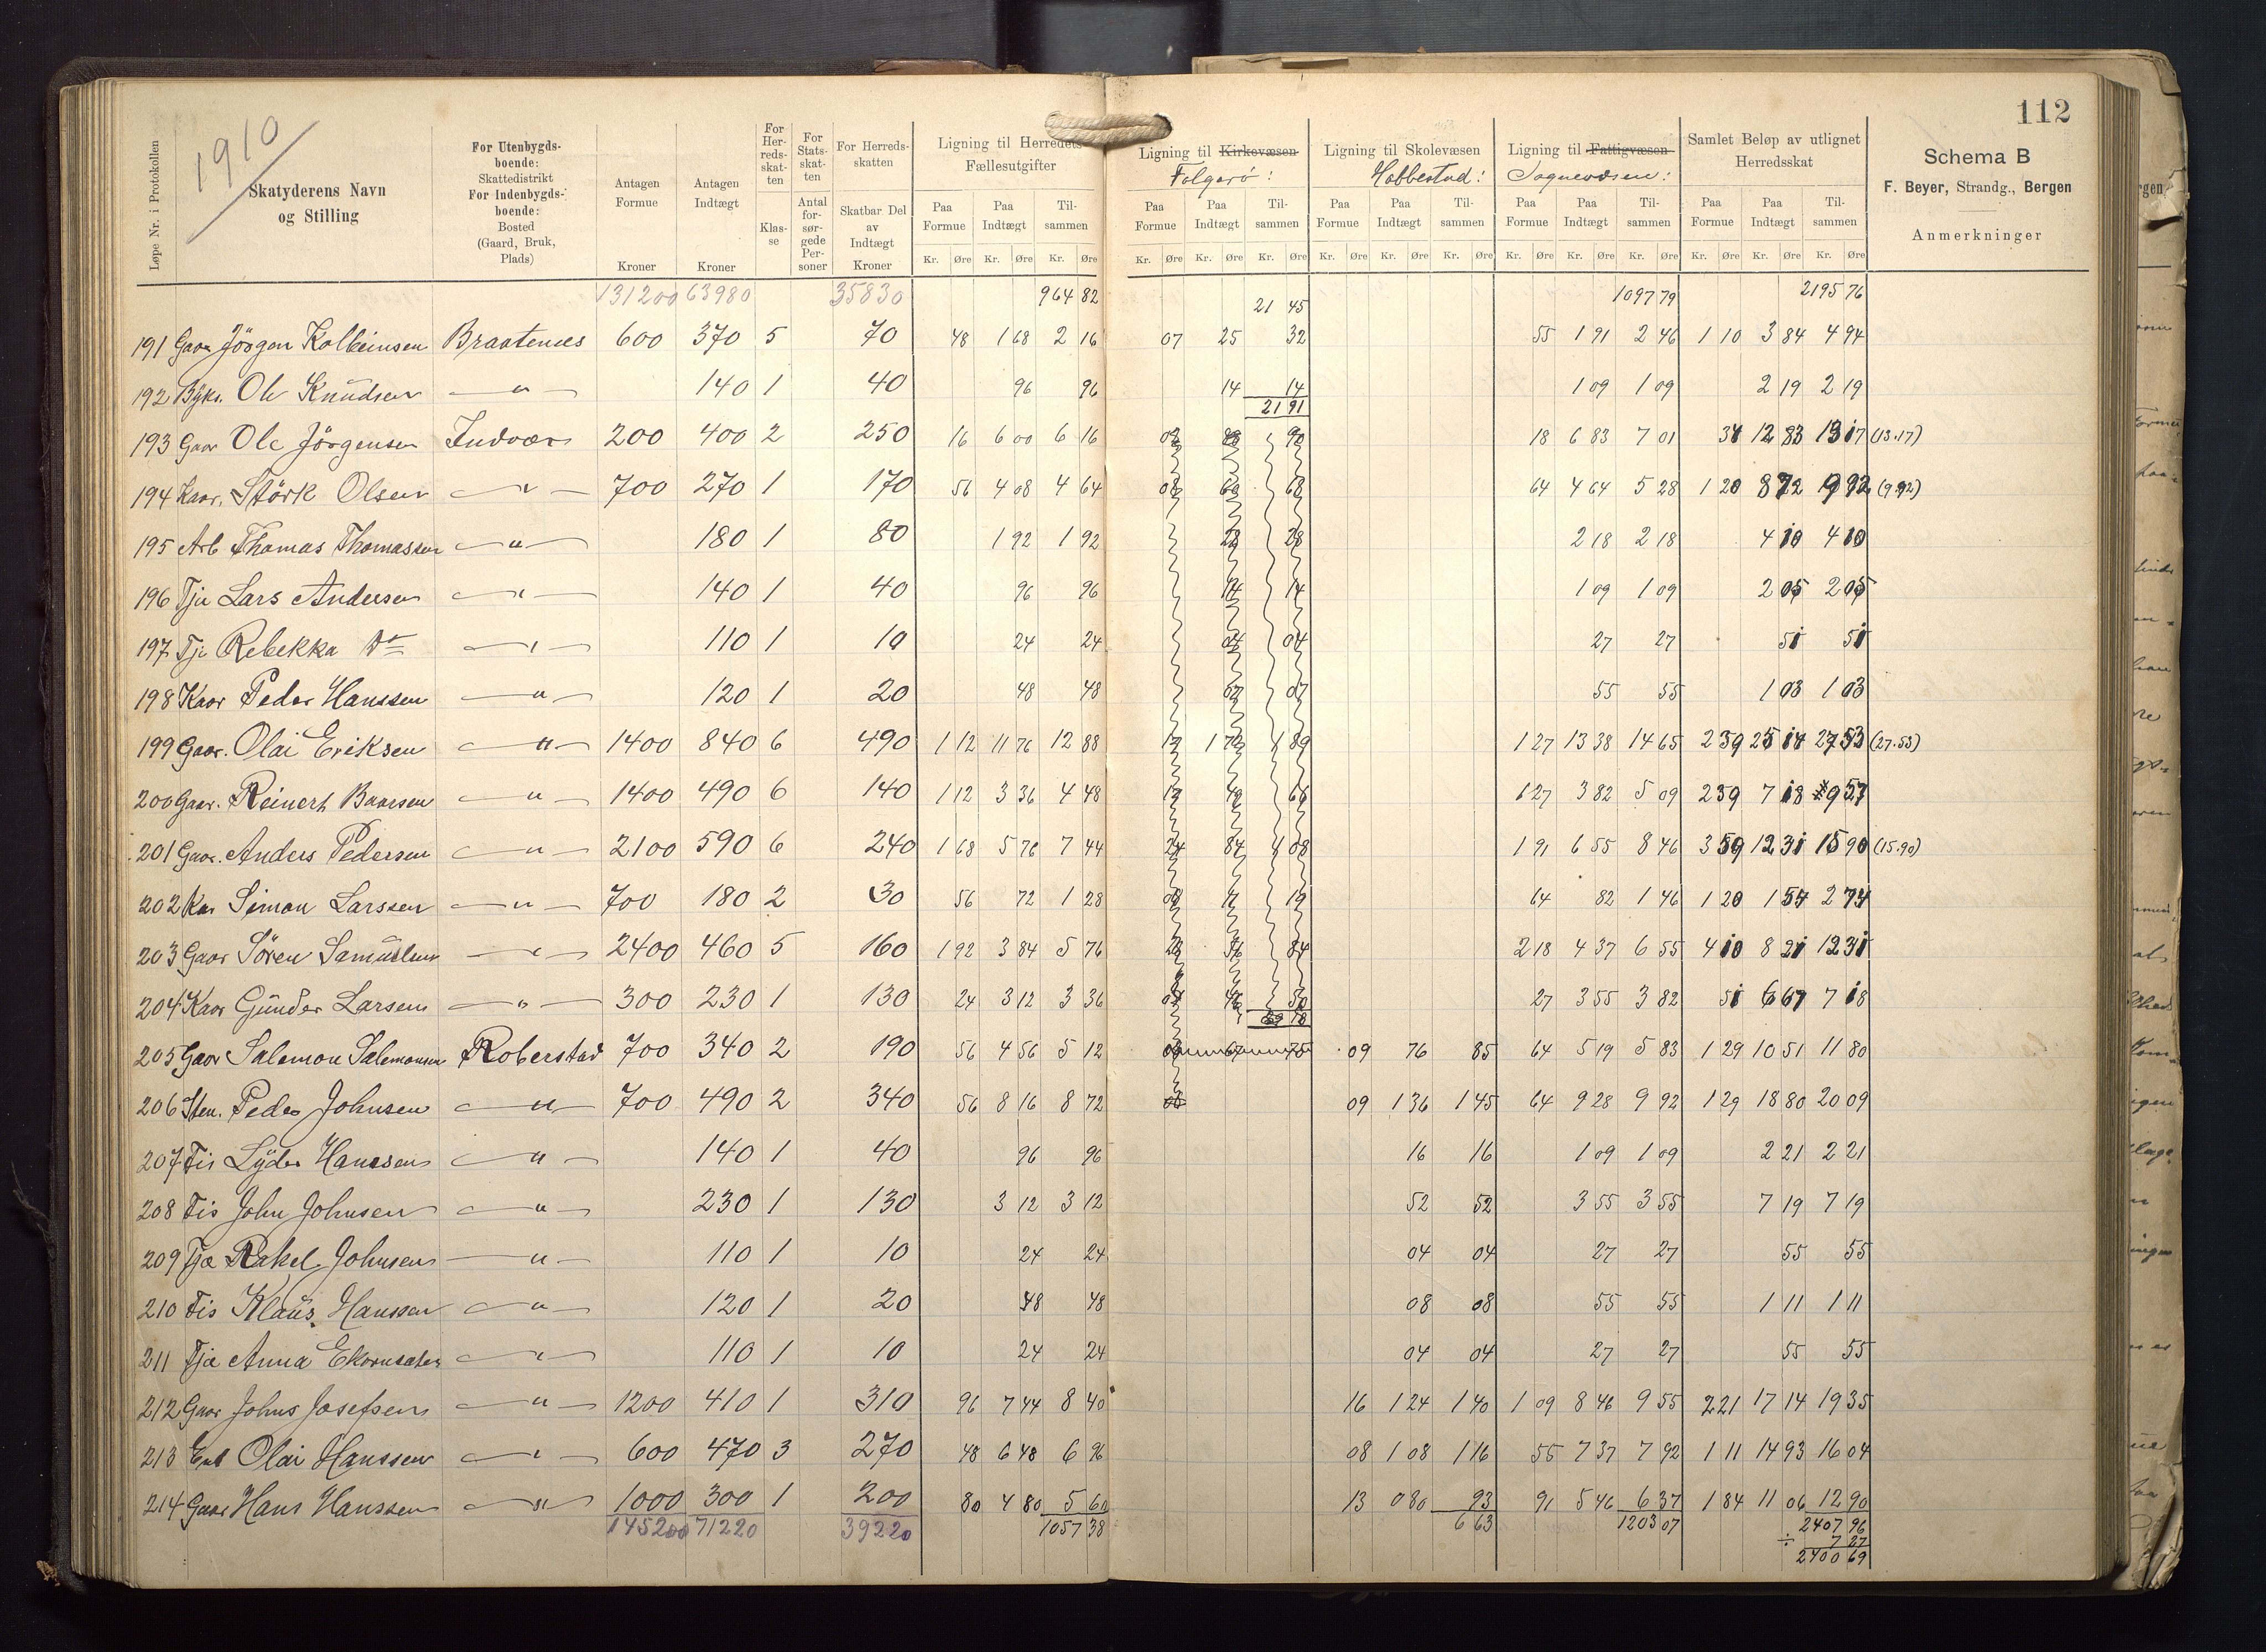 112
1910
Løpe Nr. i Protokollen
Skatyderens Navn og Stilling
For Utenbygds-boende: Skattedistrikt For Indenbygds-boende: Bosted (Gaard, Bruk, Plads)
Antagen Formue Kroner
Antagen Indtægt Kroner
For Herreds-skatten Klasse
For Stats-skatten Antal forsørgede Personer
For Herreds-skatten Skatbar Del av Indtægt Kroner
Ligning til Herredets Fællesutgifter
Ligning til Kirkevæsen Folgerø:
Ligning til Skolevæsen Habbestad:
Ligning til Fattigvæsen Sognevæsen:
Samlet Beløp av utlignet Herredsskat
Schema B
F. Beyer, Strandg., Bergen
Anmerkninger
Paa Formue Paa Indtægt Tilsammen Paa Formue Paa Indtægt Tilsammen Paa Formue Paa Indtægt Tilsammen Paa Formue Paa Indtægt Tilsammen Paa Formue Paa Indtægt Tilsammen
Kr. Øre Kr. Øre Kr. Øre Kr. Øre Kr. Øre Kr. Øre Kr. Øre Kr. Øre Kr. Øre Kr. Øre Kr. Øre Kr. Øre Kr. Øre Kr. Øre Kr. Øre
131200 63980 35830 964 82 21 45 1097 79 2195 76
191 Gaar Jörgen Kolbeinsen Braatenes 600 370 5 70 48 1 68 2 16 07 25 32 55 1 91 2 46 1 10 3 84 4 94
192 Bÿks. Ole Knudsen — " — 140 1 40 96 96 14 14 1 09 1 09 2 19 2 19
21 91
193 Gaar Ole Jörgensen Indvær 200 400 2 250 16 6 00 6 16 02 88 90 18 6 83 7 01 34 12 83 13 17 (13.17)
194 Kaar. Störk Olsen — " — 700 270 1 170 56 4 08 4 64 08 60 68 64 4 64 5 28 1 20 8 72 9 92 (9.92)
195 Arb Thomas Thomassen — " — 180 1 80 1 92 1 92 28 28 2 18 2 18 4 10 4 10
196 Tje Lars Andersen — " — 140 1 40 96 96 14 14 1 09 1 09 2 05 2 05
197 Tje Rebekka Do — " — 110 1 10 24 24 04 04 27 27 51 51
198 Kaar Peder Hanssen — " — 120 1 20 48 48 07 07 55 55 1 03 1 03
199 Gaar. Olai Eriksen — " — 1400 840 6 490 1 12 11 76 12 88 17 1 72 1 89 1 27 13 38 14 65 2 39 25 14 27 53 (27.53)
200 Gaar. Reinert Baarsen — " — 1400 490 6 140 1 12 3 36 4 48 17 49 66 1 27 3 82 5 09 2 39 7 18 9 57
201 Gaar. Anders Pedersen — " — 2100 590 6 240 1 68 5 76 7 44 24 84 1 08 1 91 6 55 8 46 3 59 12 31 15 90 (15.90)
202 Kar Simon Larssen — " — 700 180 2 30 56 72 1 28 08 11 19 64 82 1 46 1 20 1 54 2 74
203 Gaar Sören Samuelsen — " — 2400 460 5 160 1 92 3 84 5 76 28 56 84 2 18 4 37 6 55 4 10 8 21 12 31
204 Kaar Gunder Larsen — " — 300 230 1 130 24 3 12 3 36 04 46 50 27 3 55 3 82 51 6 67 7 18
205 Gaar Salemon Salemonsen Roberstad 700 340 2 190 56 4 56 5 12 08 67 75 09 76 85 64 5 19 5 83 1 29 10 51 11 80
206 Sten. Peder Johnsen — " — 700 490 2 340 56 8 16 8 72 08 09 1 36 1 45 64 9 28 9 92 1 29 18 80 20 09
207 Fis Lÿder Hanssen — " — 140 1 40 96 96 16 16 1 09 1 09 2 21 2 21
208 Fis John Johnsen — " — 230 1 130 3 12 3 12 52 52 3 55 3 55 7 19 7 19
209 Tje Rakel Johnsen — " — 110 1 10 24 24 04 04 27 27 55 55
210 Fis Klaus Hanssen — " — 120 1 20 48 48 08 08 55 55 1 11 1 11
211 Tje Anna Ekornsæter — " — 110 1 10 24 24 04 04 27 27 55 55
212 Gaar Johns Josefsen — " — 1200 410 1 310 96 7 44 8 40 16 1 24 1 40 1 09 8 46 9 55 2 21 17 14 19 35
213 Enk Olai Hanssen — " — 600 470 3 270 48 6 48 6 96 08 1 08 1 16 55 7 37 7 92 1 11 14 93 16 04
214 Gaar Hans Hanssen — " — 1000 300 1 200 80 4 80 5 60 13 0 80 93 91 5 46 6 37 1 84 11 06 12 90
145200 71220 39220 1057 38 6 63 1203 07 2407 96
÷ 7 27
2400 69